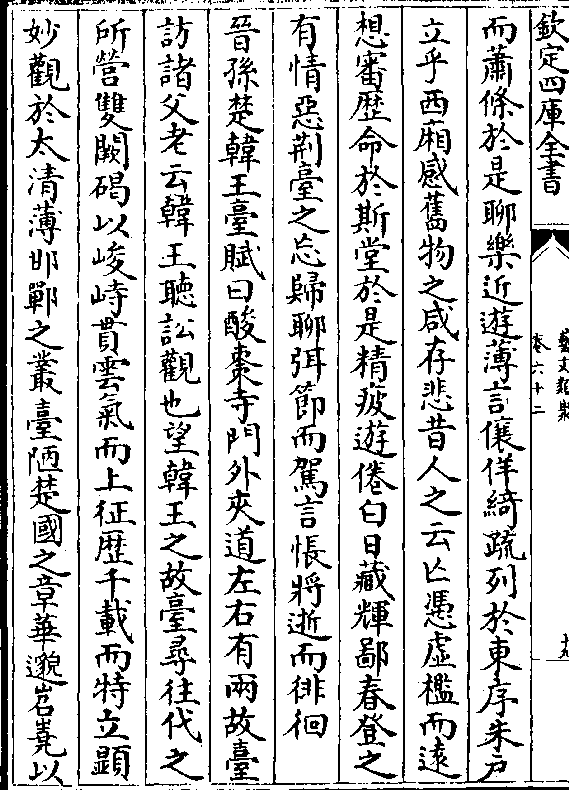 欽定四庫全書
藝文類聚
卷六十二
而蕭條於是聊樂近遊薄言儴佯綺疏列於東序朱戶
立乎西廂感舊物之咸存悲昔人之云亡憑虛檻而遠
想審歷命於斯堂於是精疲遊倦白日藏輝鄙春登之
有情惡荆臺之忘歸聊弭節而駕言悵將逝而徘徊
晉孫楚韓王臺賦曰酸棗寺門外夾道左右有兩故臺
訪諸父老云韓王聽訟觀也望韓王之故臺尋往代之
所營雙闕碣以峻峙貫雲氣而上征歷千載而特立顯
妙觀於太清薄邯鄲之叢臺陋楚國之章華邈岧嶤以